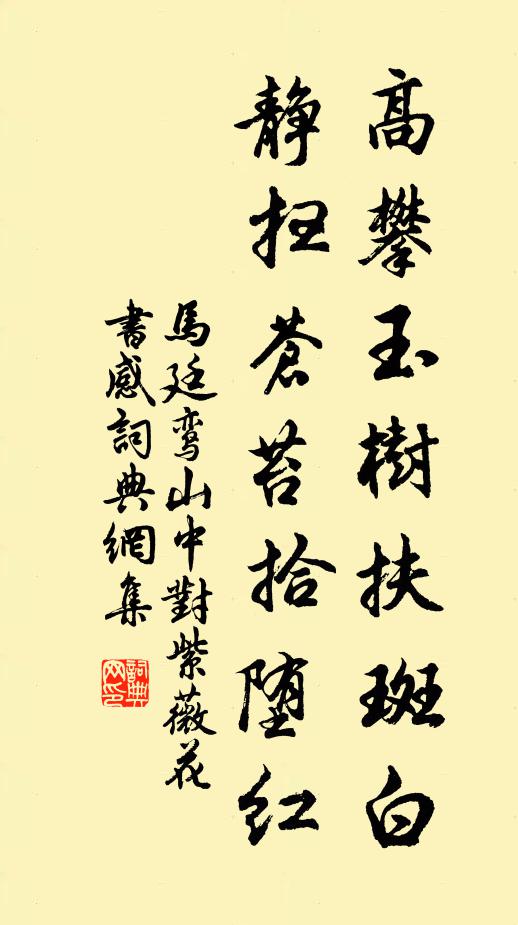 高攀玉樹扶斑白
静扫蒼苔拾堕红
馬廷鸾山中對紫薇花
書感詞典網集
詞典网印